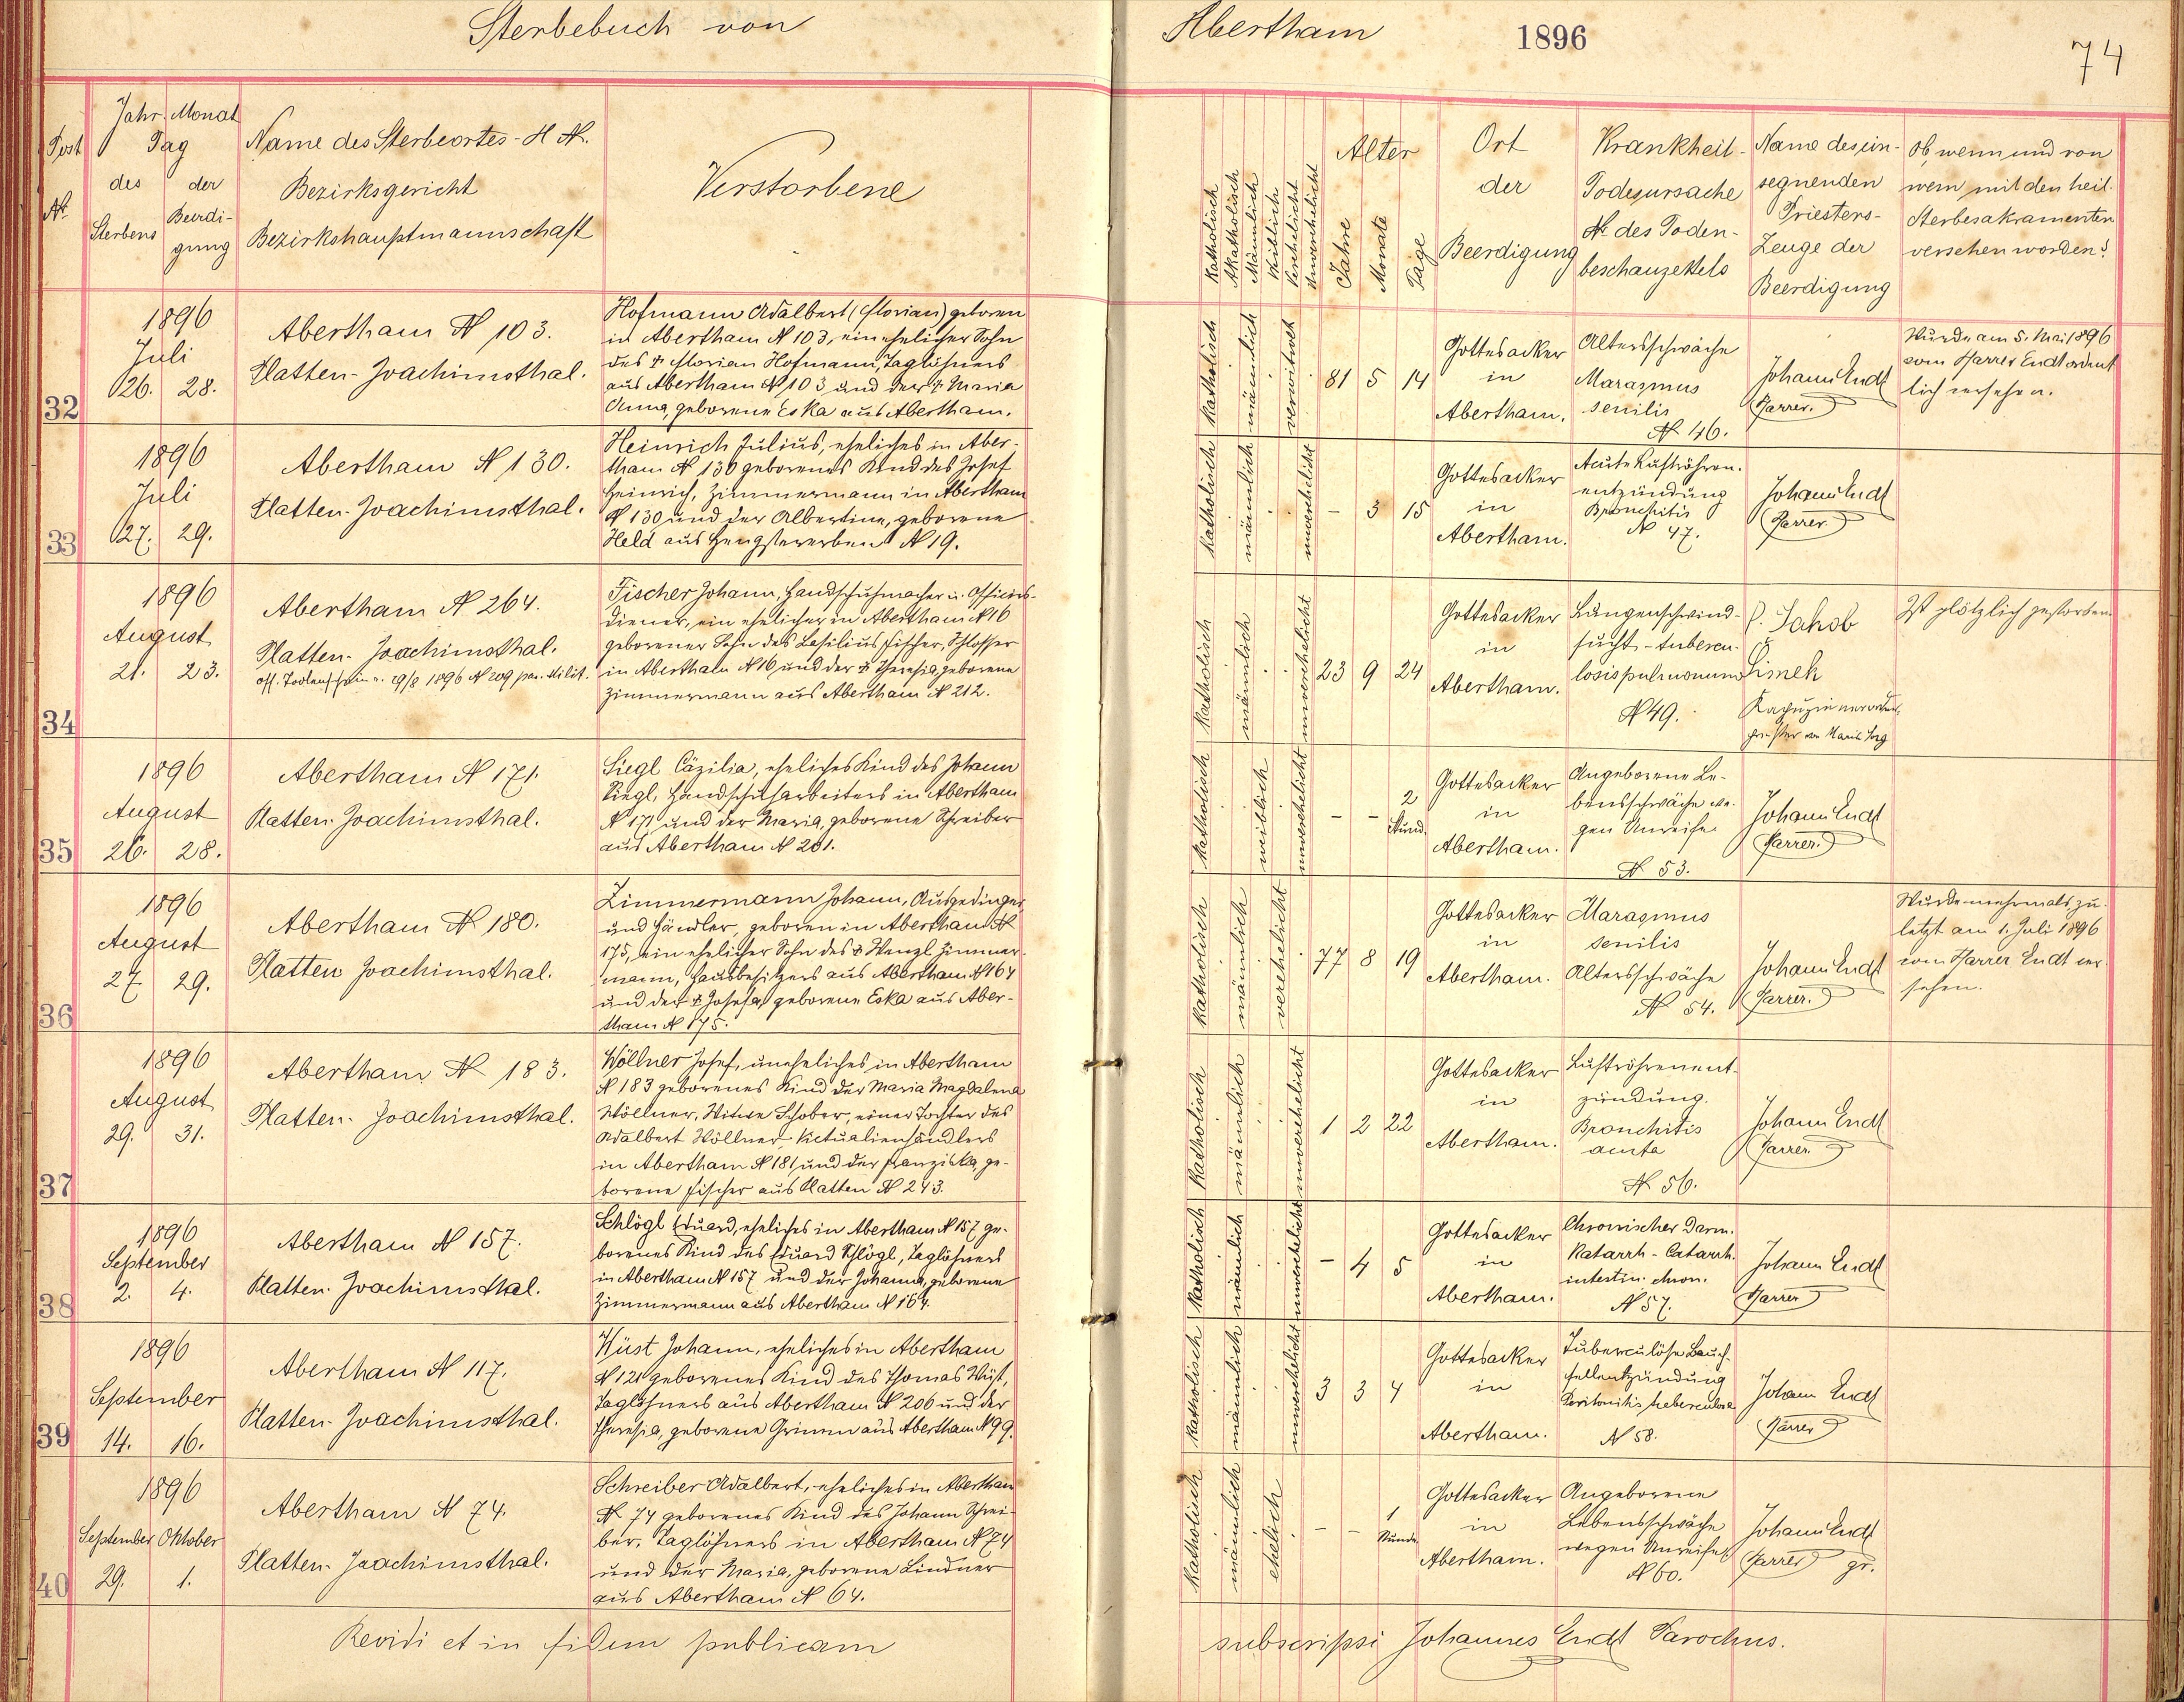 Sterbebuch von Abertham 1896 74
Post
No
Jahr Monat
Tag
des der
Sterbens Beerdi-
gung
Name des Sterbeortes - H No.
Bezirksgericht
Bezirkshauptmannschaft
Verstorbene
Katholisch
Akatholisch
Männlich
Weiblich
Verehelicht
Unverehelicht
Alter
Jahre
Monate
Tage
Ort
der
Beerdigung
Krankheit-
Todesursache
No des Toden-
beschauzettels
Name des ein-
segnenden
Priesters-
Zeuge der
Beerdigung
Ob, wenn und von
wem mit den heil.
Sterbesakramenten
versehen worden?
32
1896
Juli
26. 28.
Abertham No 103.
Platten-Joachimsthal.
Hofmann Adalbert (Florian) geboren
in Abertham No 103, ein ehelicher Sohn
des † Florian Hofmann, Taglöhners
aus Abertham No 103 und der † Maria
Anna, geborene Eska aus Abertham.
katholisch
männlich
verwitwet
81 5 14
Gottesacker
in
Abertham.
Altersschwäche
Marasmus
senilis
No 46.
Johann Endt
Pfarrer.
Wurde am 5. Mai 1896
vom Pfarrer Endt ordent
lich versehen.
33
1896
Juli
27. 29.
Abertham No 130.
Platten-Joachimsthal.
Heinrich Julius, eheliches in Aber-
tham No 130 geborenes Kind des Josef
Heinrich, Zimmermann in Abertham
No 130 und der Albertine, geborene
Held aus Hengstererben No 19.
katholisch
männlich
unverehelicht
- 3 15
Gottesacker
in
Abertham.
Acute Luftröhren-
entzündung
Bronchitis
No 47.
Johann Endt
Pfarrer
34
1896
August
21. 23.
Abertham No 264.
Platten-Joachimsthal.
off. Todtenschein v. 29/8 1896 No 209 par. Milit.
Fischer Johann, Handschuhmacher u. Officiers-
diener, ein ehelicher in Abertham No 16
geborener Sohn des Basilius Fischer, Schlosser
in Abertham No 16 und der † Theresia, geborene
Zimmermann aus Abertham No 212.
katholisch
männlich
unverehelicht
23 9 24
Gottesacker
in
Abertham.
Lungenschwind-
sucht - tubercu-
losis pulmonum
No 49.
P. Jakob
Šimek
Kapuzinerordens
priester von Maria Sorg
Ist plötzlich gestorben.
35
1896
August
26. 28.
Abertham No 171.
Platten-Joachimsthal.
Siegl Cäzilia, eheliches Kind des Johann
Siegl, Handschuharbeiters in Abertham
No 171 und der Maria, geborene Schreiber
aus Abertham No 201.
katholisch
weiblich
unverehelicht
- - 2
Stund.
Gottesacker
in
Abertham.
Angeborene Le-
bensschwäche we-
gen Unreife
No 53.
Johann Endt
Pfarrer.
36
1896
August
27. 29.
Abertham No 180.
Platten Joachimsthal.
Zimmermann Johann, Ausgedinger
und Händler, geboren in Abertham No
175, ein ehelicher Sohn des † Wenzl Zimmer-
mann, Hausbesitzers aus Abertham No 164
und der † Josefa, geborene Eska aus Aber-
tham No 175.
katholisch
männlich
verehelicht
77 8 19
Gottesacker
in
Abertham.
Marasmus
senilis
Altersschwäche
No 54.
Johann Endt
Pfarrer.
Wurde mehrmals, zu-
letzt am 1. Juli 1896
vom Pfarrer Endt ver-
sehen.
37
1896
August
29. 31.
Abertham No 183.
Platten-Joachimsthal.
Wöllner Josef, uneheliches in Abertham
No 183 geborenes Kind der Maria Magdalena
Wöllner, Witwe Schober, einer Tochter des
Adalbert Wöllner Victualienhändlers
in Abertham No 181 und der Franziska, ge-
borene Fischer aus Platten No 243.
katholisch
männlich
unverehelicht
1 2 22
Gottesacker
in
Abertham.
Luftröhrenent-
zündung
Bronchitis
acuta
No 56.
Johann Endt
Pfarrer
38
1896
September
2. 4.
Abertham No 157.
Platten-Joachimsthal.
Schlögl Eduard, eheliches in Abertham No 157 ge-
borenes Kind des Eduard Schlögl, Taglöhners
in Abertham No 157 und der Johanna, geborene
Zimmermann aus Abertham No 164.
katholisch
männlich
unverehelicht
- 4 5
Gottesacker
in
Abertham.
Chronischer Darm-
katarrh - Catarrh.
intestin. chron.
No 57.
Johann Endt
Pfarrer
39
1896
September
14. 16.
Abertham No 117.
Platten-Joachimsthal.
Wüst Johann, eheliches in Abertham
No 121 geborenes Kind des Thomas Wüst,
Taglöhners aus Abertham No 206 und der
Theresia, geborene Grimm aus Abertham No 99.
katholisch
männlich
unverehelicht
3 3 4
Gottesacker
in
Abertham.
Tuberculöse Bauch-
fellentzündung
Peritonitis tuberculosa
No 58.
Johann Endt
Pfarrer
40
1896
September Oktober
29. 1.
Abertham No 74.
Platten-Joachimsthal.
Schreiber Adalbert, eheliches in Abertham
No 74 geborenes Kind des Johann Schrei-
ber, Taglöhners in Abertham No 74
und der Maria, geborene Lindner
aus Abertham No 64.
katholisch
männlich
ehelich
- - 1
Stunde
Gottesacker
in
Abertham.
Angeborene
Lebensschwäche
wegen Unreife
No 60.
Johann Endt
Pfarrer gr.
Revidi et in fidem publicam subscripsi Johannes Endt Parochus.